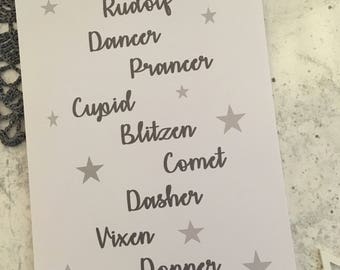 Rudolf
Dancer
Prancer
Cupid
Blitzen
Comet
Dasher
Vixen
Donner